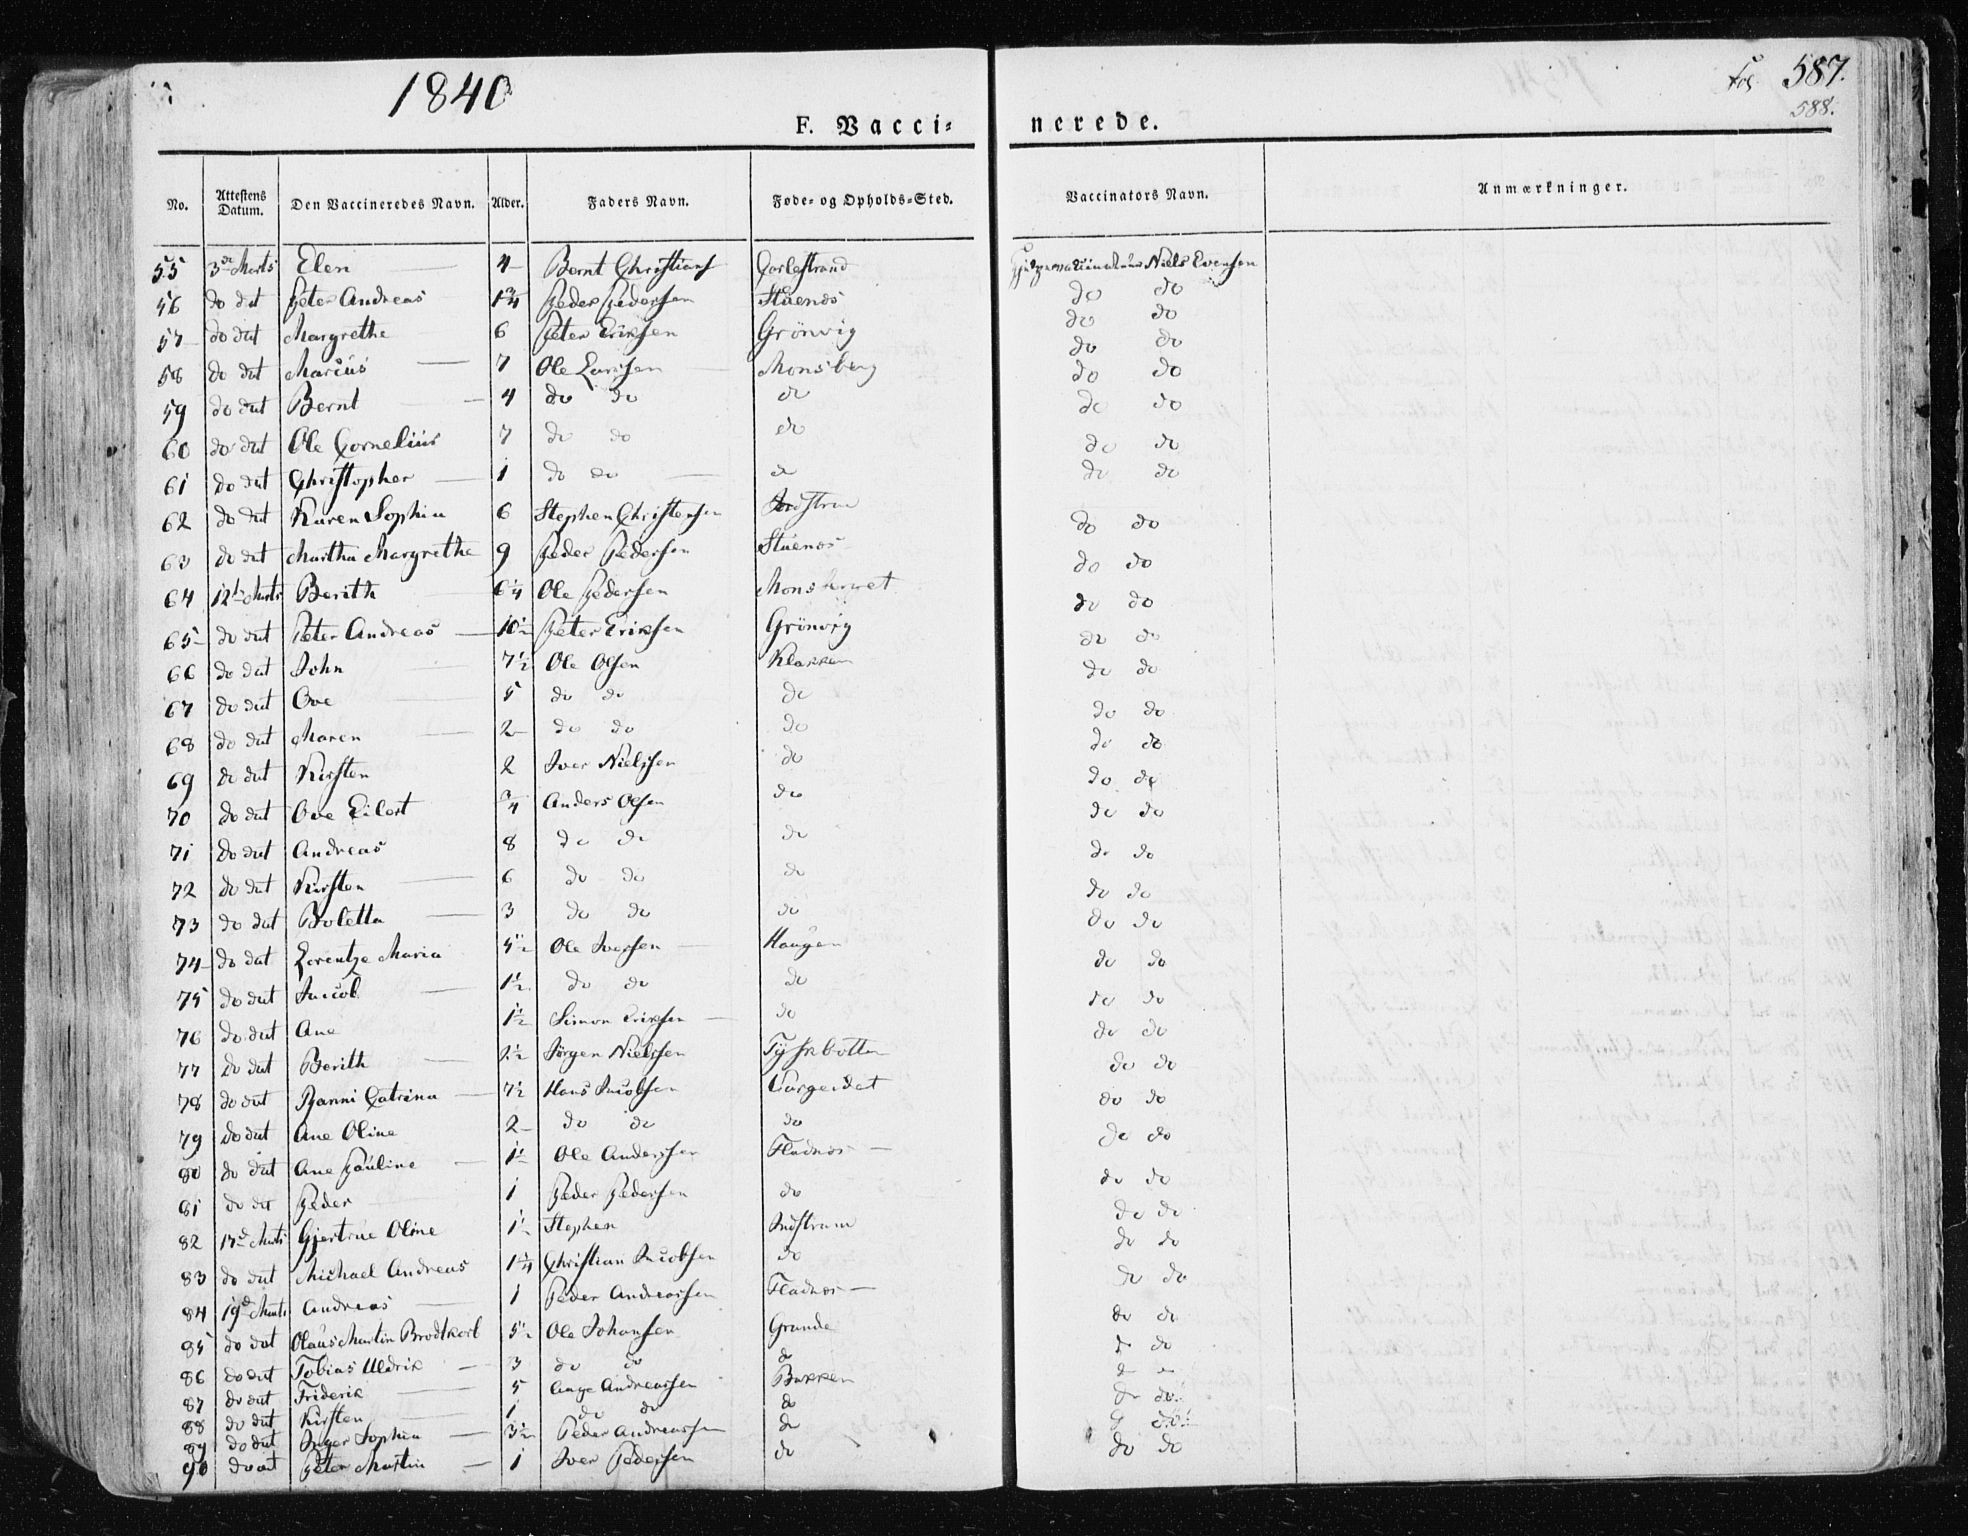 1840
Fol 587.
588.
F. Vaccinerede.
No. Attestens Datum. Den Vaccineredes Navn. Alder. Faders Navn. Føde- og Opholds-Sted. Vaccinators Navn. Anmærkninger.
55 3de Marts Elen 4 Bernt Christians Carlestrand Niels Evensen
56 do dat Peter Andreas 1 3/4 Peder Pedersen Stuenes do do
57 do dat Margrethe 6 Peter Eriksen Grönvig do do
58 do dat Marcus 7 Ole Larssen Monsberg do do
59 do dat Bernt 4 do do do do do
60 do dat Ole Cornelius 7 do do do do do
61 do dat Christopher 1 do do do do do
62 do dat Karen Sophia 6 Stephen Christensen do do
63 do dat Martha Margrethe 9 Peder Pedersen Stuenes do do
64 12te Marts Berith 6 1/4 Ole Pedersen do do
65 do dat Peter Andreas 10 1/2 Peter Eriksen Grönvig do do
66 do dat John 7 1/2 Ole Olsen Klakken do do
67 do dat Ove 5 do do do do do
68 do dat Maren 2 do do do do do
69 do dat Kirsten 2 Iver Nielssen do do do
70 do dat Ove Eilert 3/4 Anders Olsen do do do
71 do dat Andreas 8 do do do do do
72 do dat Kirsten 6 do do do do do
73 do dat Boletta 3 do do do do do
74 do dat Lorentze Maria 5 1/2 Ole Iversen Haugen do do
75 do dat Jacob 1 1/2 do do do do do
76 do dat Ane 1 1/2 Simon Eriksen do do do
77 do dat Berith Jörgen Nielssen do do
78 do dat Catrina 7 1/2 Hans Jacobsen do do
79 do dat Ane Oline 2 do do do do do
80 do dat Ane Pauline 1 1/2 Ole Anderssen Fladnes do do
81 do dat Peder 1 Peder Pedersen do do do
82 Marts Gjertrue Oline 1 1/2 Stephen do do
83 do dat Michael Andreas 1 1/4 Christian Jacobsen do do do
84 19de Marts Andreas 1 Peder Andreassen Fladnes do do
85 do dat Olaus Martin Brodtkorb 5 1/2 Ole Johansen Grande do do
86 do dat Tobias Uldrik 3 do do do
87 do dat Friderik 5 Aage Andreassen Bakken do
88 do dat Kirsten 1 do do do do
89 do dat Inger Sophia 3 1/2 Peder Andreassen do do
90 do dat Peter Martin 1 Iver Pedersen do do do